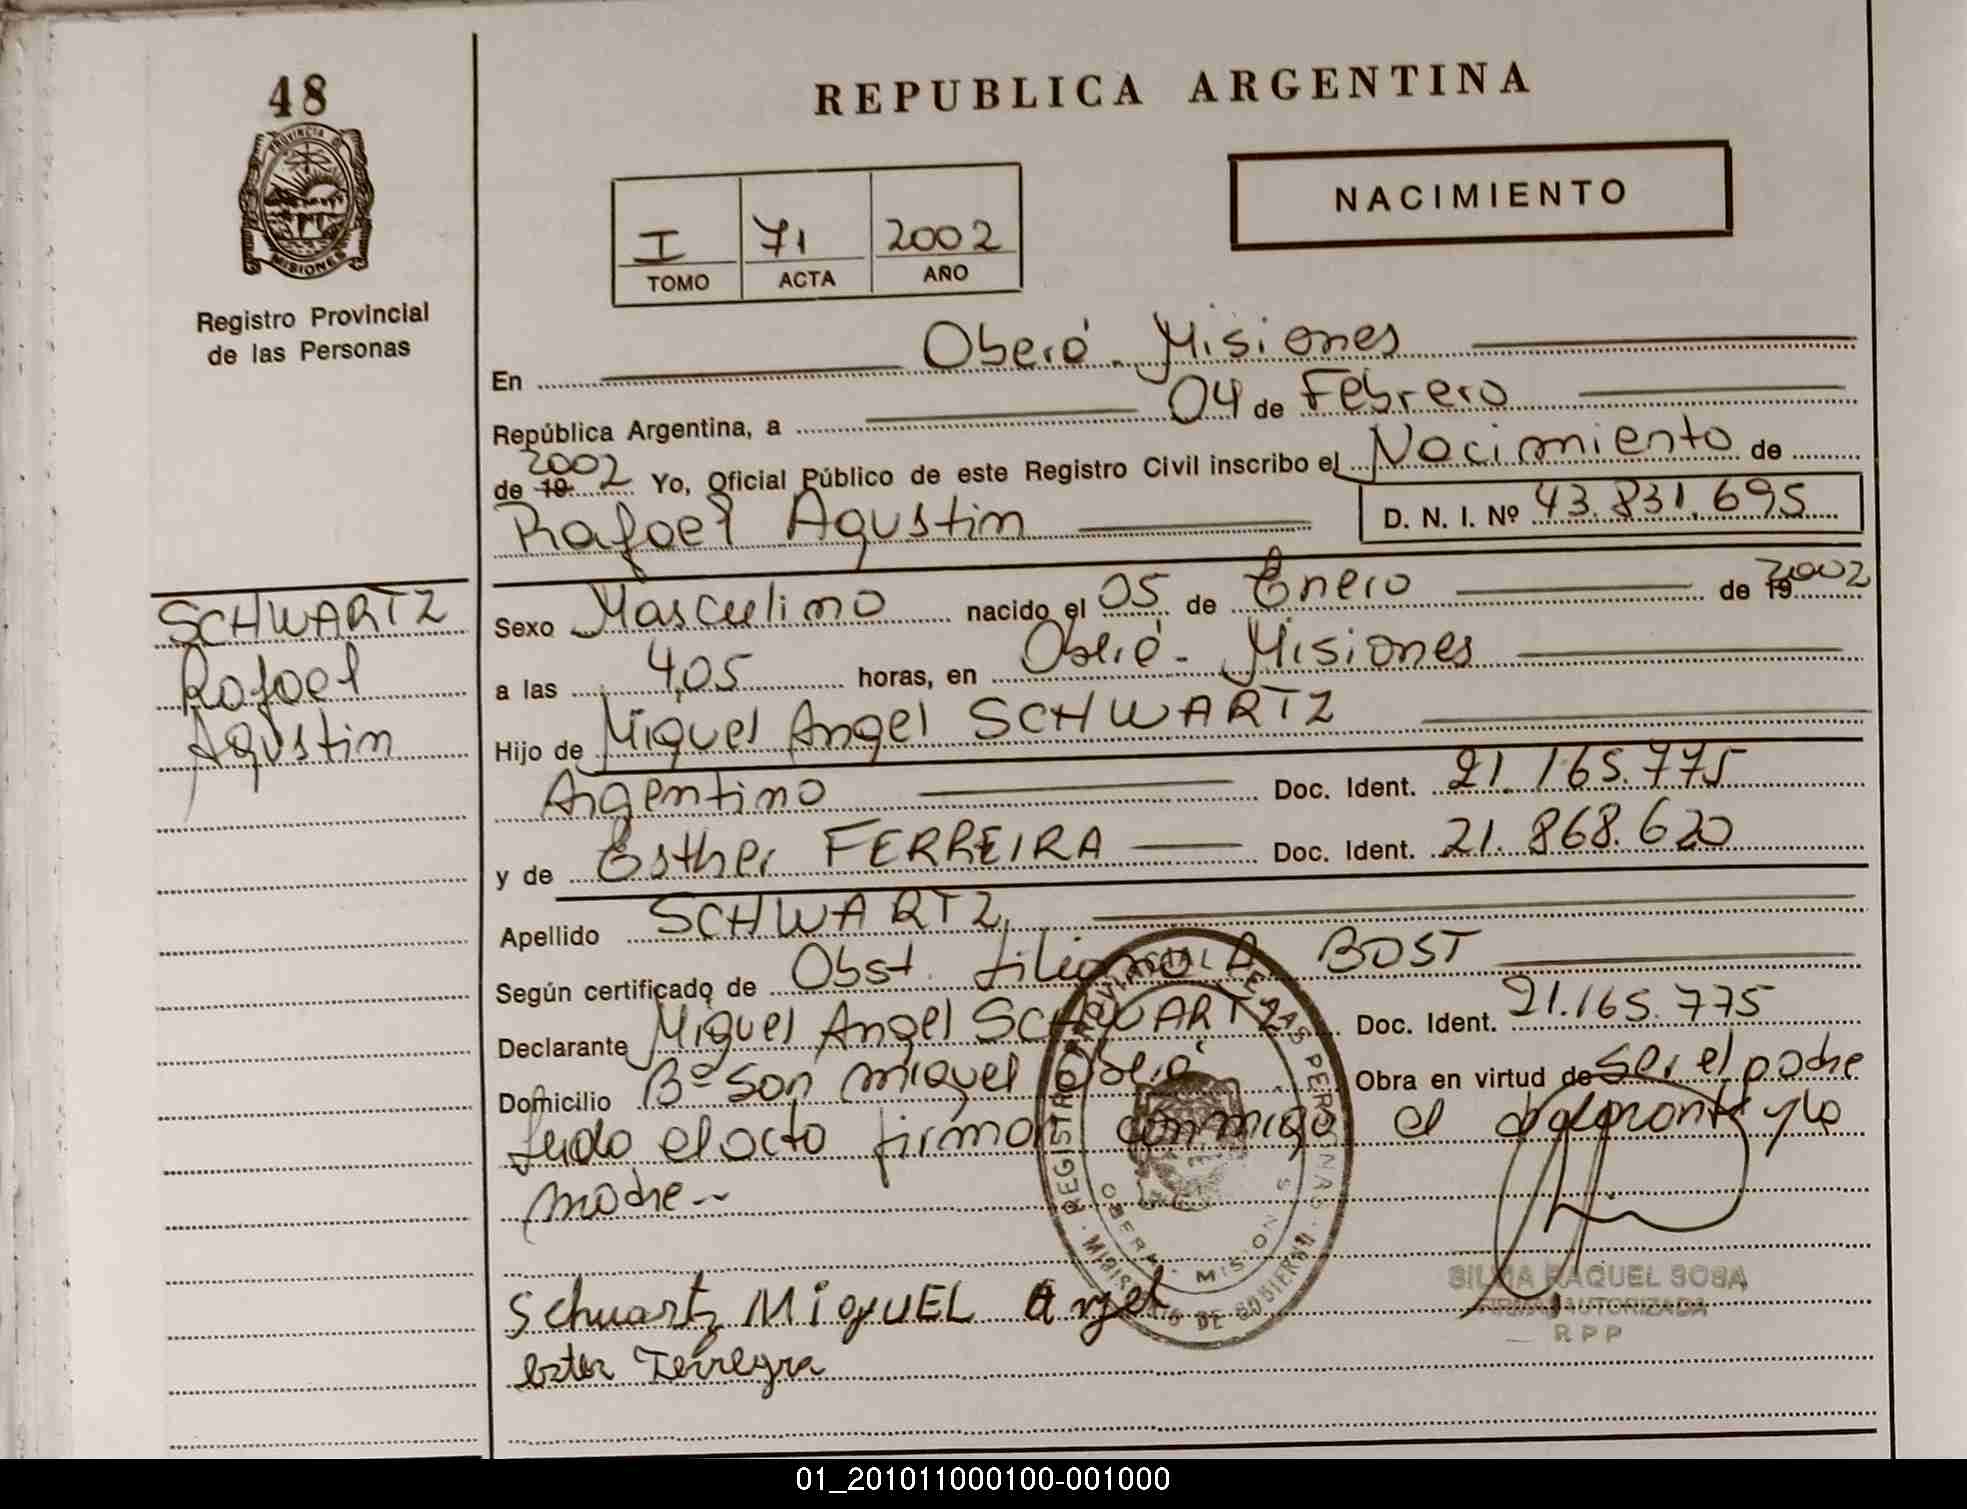 48
REPUBLICA ARGENTINA
PROVINCIA DE
MISIONES
NACIMIENTO
I 71 2002
TOMO ACTA AÑO
Registro Provincial
de las Personas
En Oberá - Misiones
República Argentina, a 04 de Febrero
de 19 2002 Yo, Oficial Público de este Registro Civil inscribo el Nacimiento de
Rafael Agustin D. N. I. Nº 43.831.695
SCHWARTZ
Rafael
Agustin
Sexo Masculino nacido el 05 de Enero de 19 2002
a las 4,05 horas, en Oberá - Misiones
Hijo de Miguel Angel SCHWARTZ
Argentino Doc. Ident. 21.165.775
y de Esther FERREIRA Doc. Ident. 21.868.620
Apellido SCHWARTZ
Según certificado de Obst. Liliana A. BOST
Declarante Miguel Angel SCHWARTZ Doc. Ident. 21.165.775
Domicilio Bº San miguel Oberá Obra en virtud de ser el padre
Leido el acto firman conmigo el declarante y la
madre--
REGISTRO PROVINCIAL DE LAS PERSONAS
OBERA - MISIONES
MINISTERIO DE GOBIERNO
SILVIA RAQUEL SOSA
FIRMA AUTORIZADA
R P P
Schwartz MiguEL Angel
ester
01_201011000100-001000